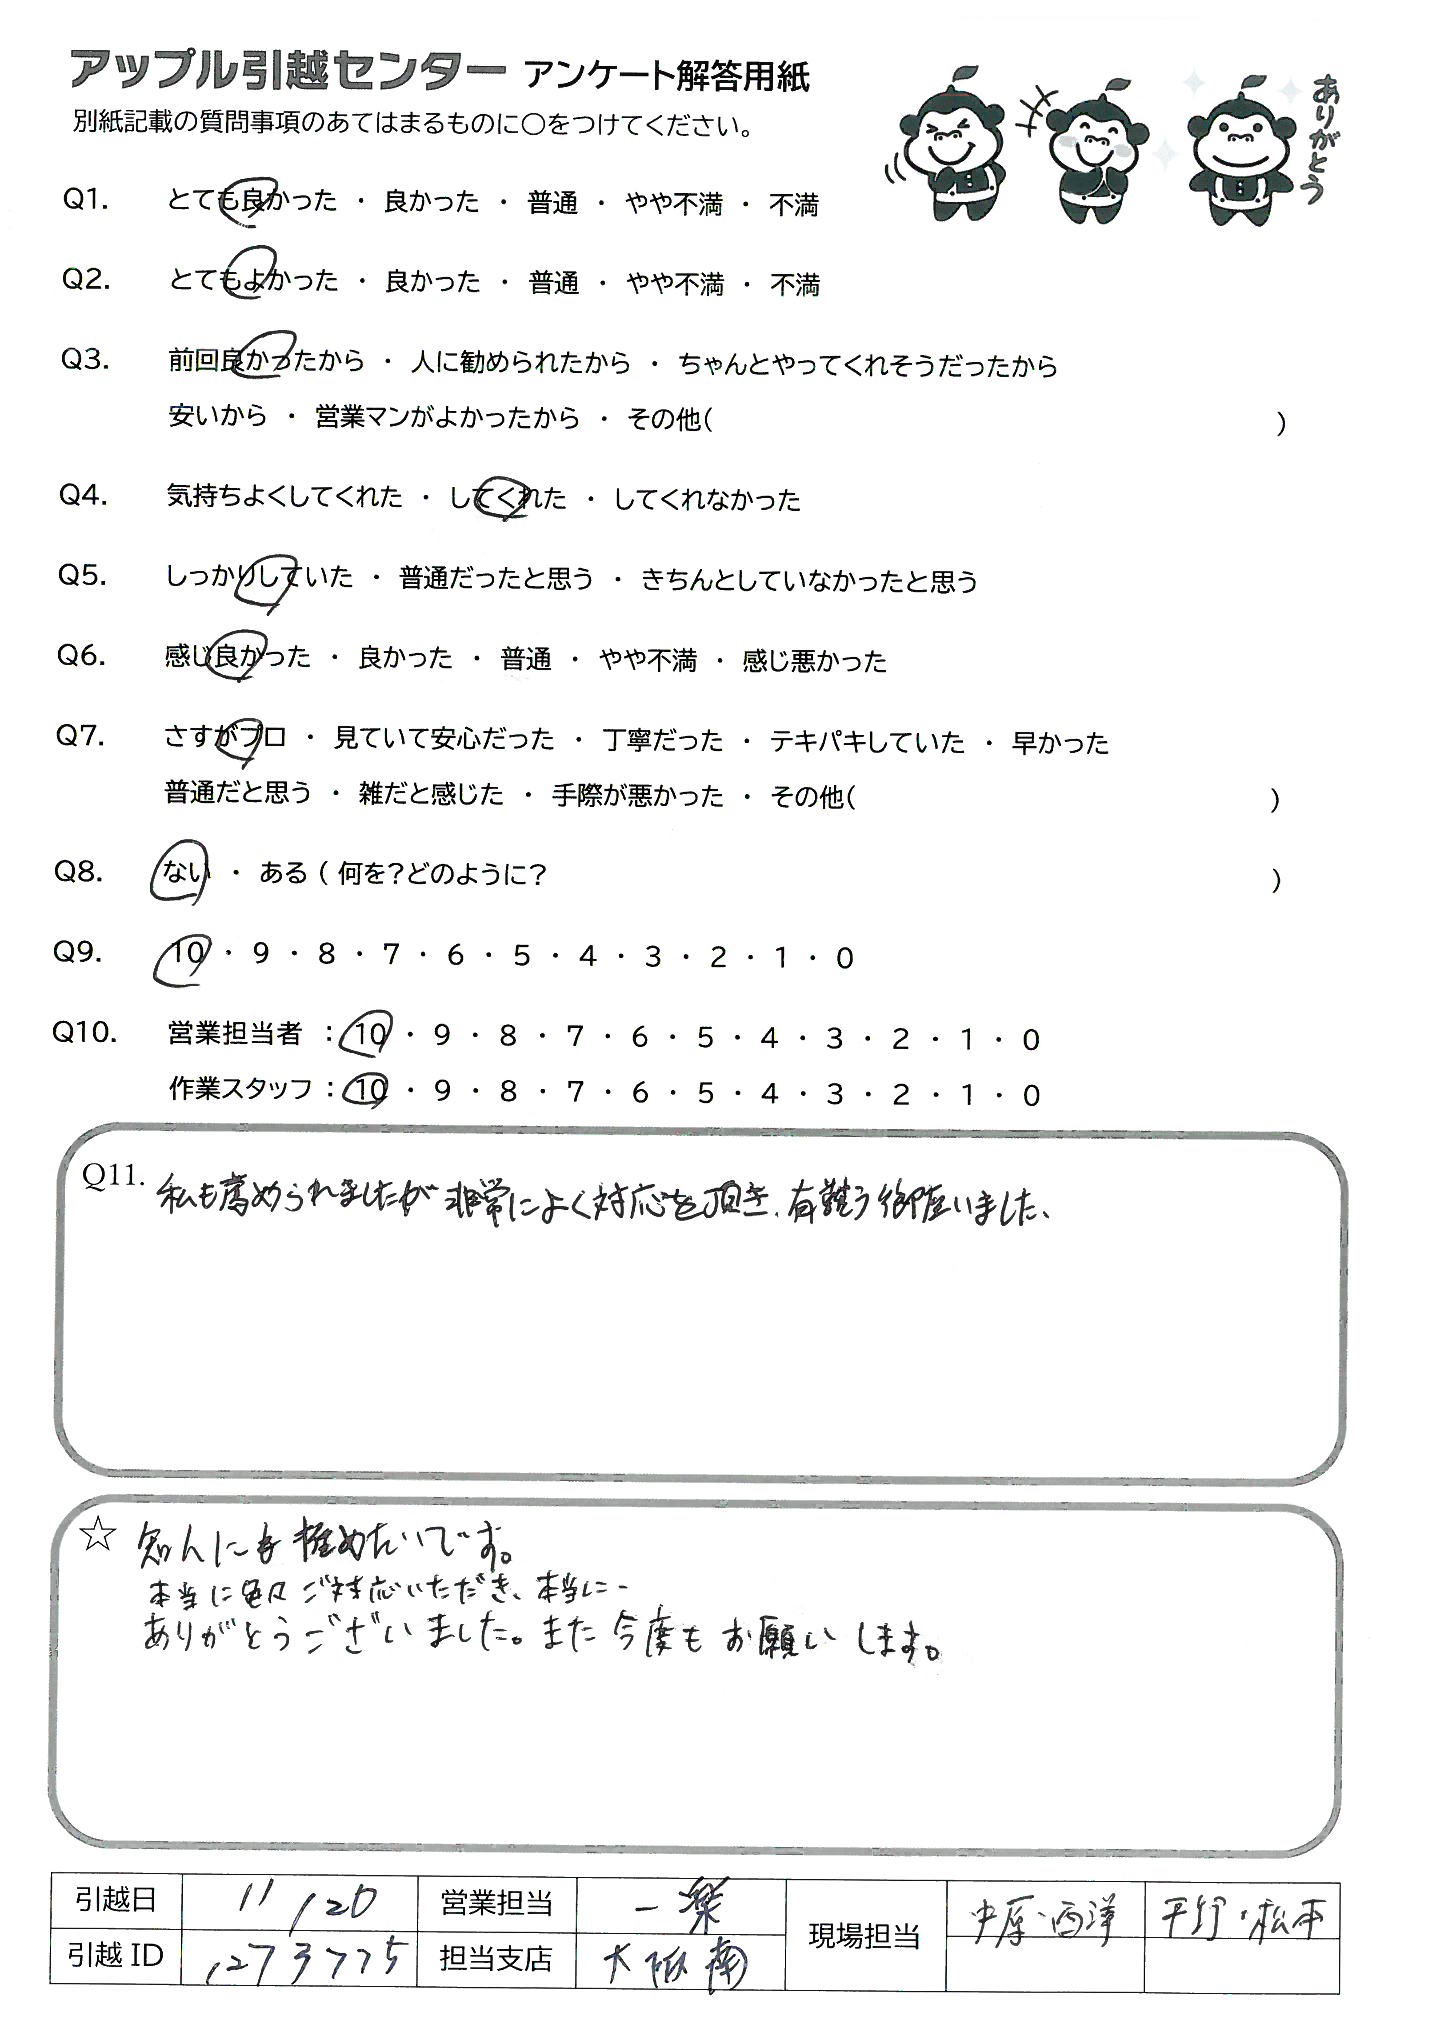 アップル引越センター アンケート解答用紙
別紙記載の質問事項のあてはまるものに○をつけてください。
ありがとう
Q1. とても良かった ・ 良かった ・ 普通 ・ やや不満 ・ 不満
Q2. とてもよかった ・ 良かった ・ 普通 ・ やや不満 ・ 不満
Q3. 前回良かったから ・ 人に勧められたから ・ ちゃんとやってくれそうだったから
安いから ・ 営業マンがよかったから ・ その他( )
Q4. 気持ちよくしてくれた ・ してくれた ・ してくれなかった
Q5. しっかりしていた ・ 普通だったと思う ・ きちんとしていなかったと思う
Q6. 感じ良かった ・ 良かった ・ 普通 ・ やや不満 ・ 感じ悪かった
Q7. さすがプロ ・ 見ていて安心だった ・ 丁寧だった ・ テキパキしていた ・ 早かった
普通だと思う ・ 雑だと感じた ・ 手際が悪かった ・ その他( )
Q8. ない ・ ある ( 何を?どのように? )
Q9. 10 ・ 9 ・ 8 ・ 7 ・ 6 ・ 5 ・ 4 ・ 3 ・ 2 ・ 1 ・ 0
Q10. 営業担当者 : 10 ・ 9 ・ 8 ・ 7 ・ 6 ・ 5 ・ 4 ・ 3 ・ 2 ・ 1 ・ 0
作業スタッフ : 10 ・ 9 ・ 8 ・ 7 ・ 6 ・ 5 ・ 4 ・ 3 ・ 2 ・ 1 ・ 0
Q11. 私も薦められましたが非常によく対応を頂き、有難う御座いました、
☆ 知人にも推めたいです。
本当に色々ご対応いただき、本当に
ありがとうございました。また今度もお願いします。
引越日 11/20 営業担当 一楽 現場担当 中原・西澤 平野・松本
引越ID 1273775 担当支店 大阪南